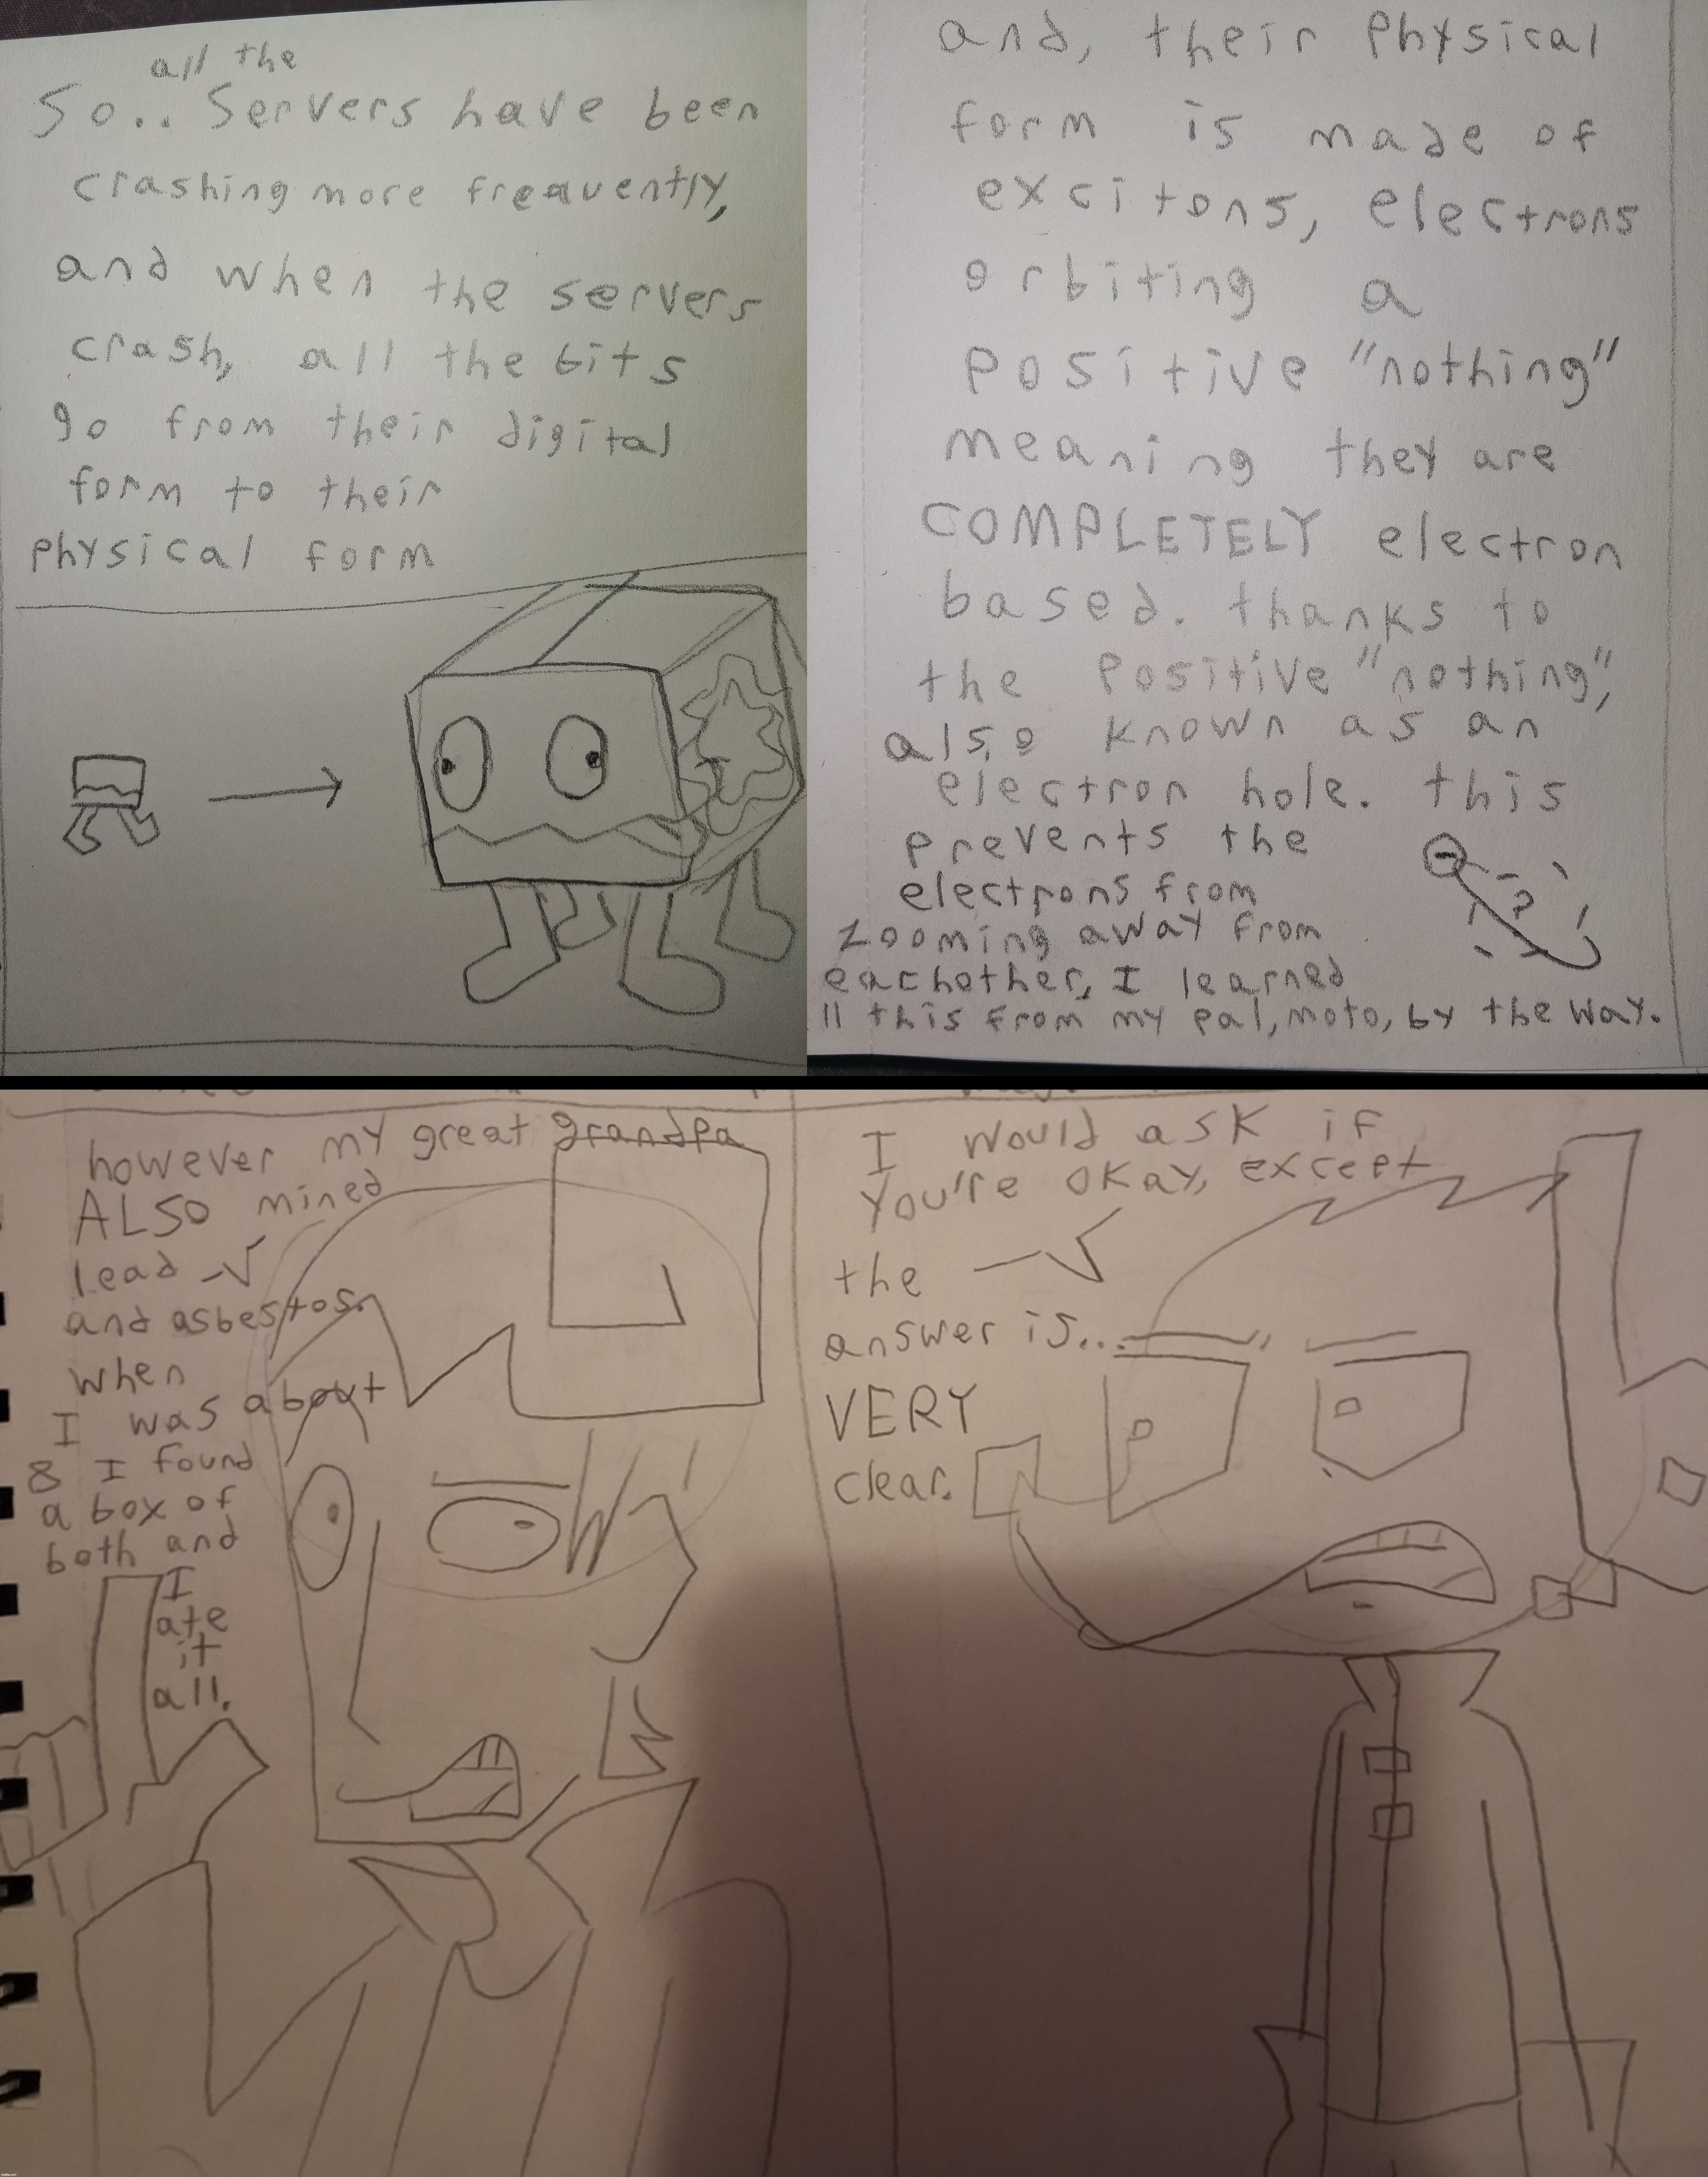 all the
So.. Servers have been
crashing more freaquently,
and when the servers
crash, all the bits
go from their digital
form to their
physical form
and, their physical
form is made of
excitons, electrons
orbiting a
positive "nothing"
meaning they are
COMPLETELY electron
based. thanks to
the positive "nothing",
also known as an
electron hole. this
prevents the
electrons from
zooming away from
eachother, I learned
ll this from my pal, moto, by the way.
however my great grandpa
ALSO mined
lead
and asbestos.
when
I was about
8 I found
a box of
both and
I
ate
it
all.
I would ask if
you're okay, except
the
answer is...
VERY
clear.